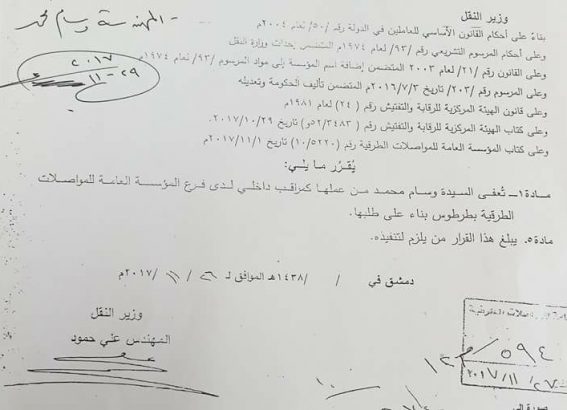 المهندسة وسام محمد
٢٠١٧
٢٩-١١
وزير النقل
بناءً على أحكام القانون الأساسي للعاملين في الدولة رقم /٥٠/ لعام ٢٠٠٤م
وعلى أحكام المرسوم التشريعي /٩٣/ لعام ١٩٧٤م المتضمن إحداث وزارة النقل
وعلى القانون رقم /٢١/ لعام ٢٠٠٣ المتضمن إضافة اسم المؤسسة إلى مواد المرسوم /٩٣/ لعام ١٩٧٤م
وعلى المرسوم رقم /٢٠٣/ تاريخ ٢٠١٦/٧/٣م المتضمن تأليف الحكومة وتعديله
وعلى قانون الهيئة المركزية للرقابة والتفتيش رقم ( ٢٤) لعام ١٩٨١م
وعلى كتاب الهيئة المركزية للرقابة والتفتيش رقم ( ٥٢/٣٤٨٣و) تاريخ ٢٠١٧/١٠/٢٩.
وعلى كتاب المؤسسة العامة للمواصلات الطرقية رقم (١٠/٥٢٢٠) تاريخ ٢٠١٧/١١/١م
يُقرّر ما يلي:
مادة١ــ تُعفى السيدة وسام محمد من عملها كمراقب داخلي لدى فرع المؤسسة العامة للمواصلات
الطرقية بطرطوس بناء على طلبها.
مادة٥. يبلغ هذا القرار من يلزم لتنفيذه.
دمشق في / /١٤٣٨هـ الموافق لـ / ١١ /٢٠١٧م
وزير النقل
المهندس علي حمود
٥٩٤
٢٠١٧/١١/٢٧
صورة إلى